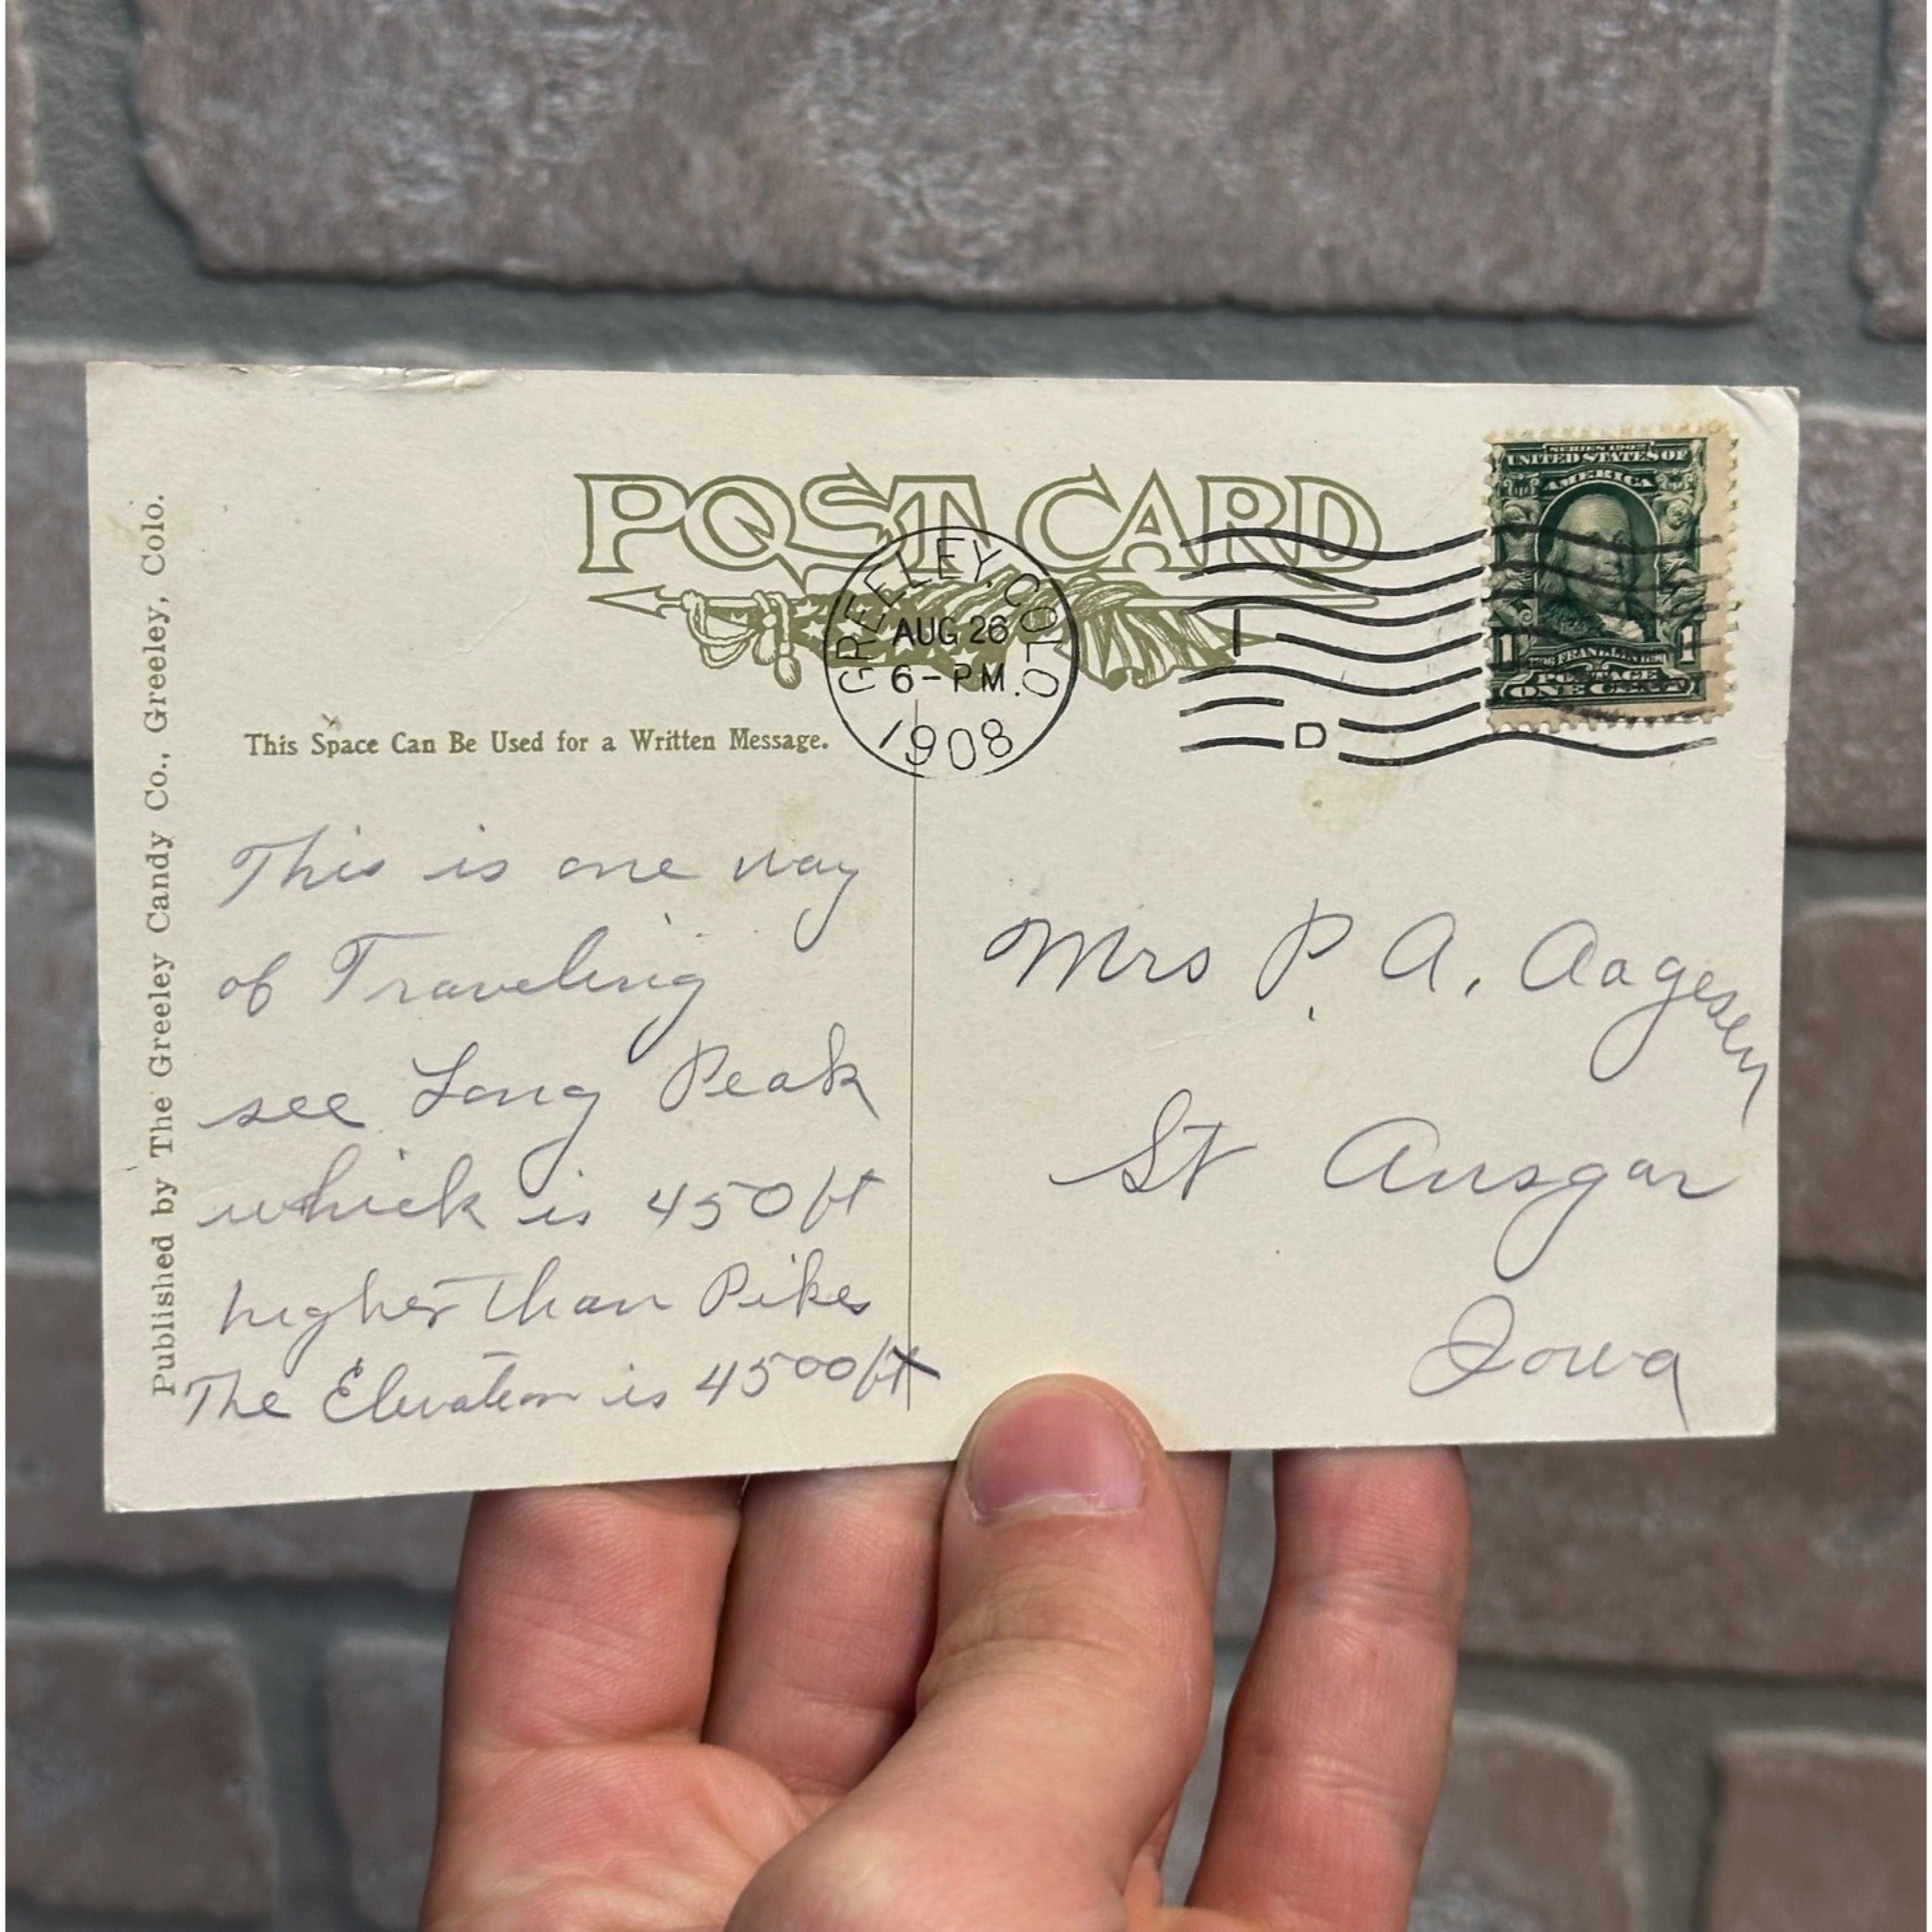 POST CARD
GREELEY. COLO.
AUG 26
6-PM.
1908
1
D
SERIES 1902
UNITED STATES OF
AMERICA
1 FRANKLIN 1
POSTAGE
ONE CENT
Published by The Greeley Candy Co., Greeley, Colo.
This Space Can Be Used for a Written Message.
This is one way
of Traveling
see Long Peak
which is 450 ft
higher than Pikes
The Elevation is 4500 ft
Mrs P. A. Aagesen
St Ansgar
Iowa